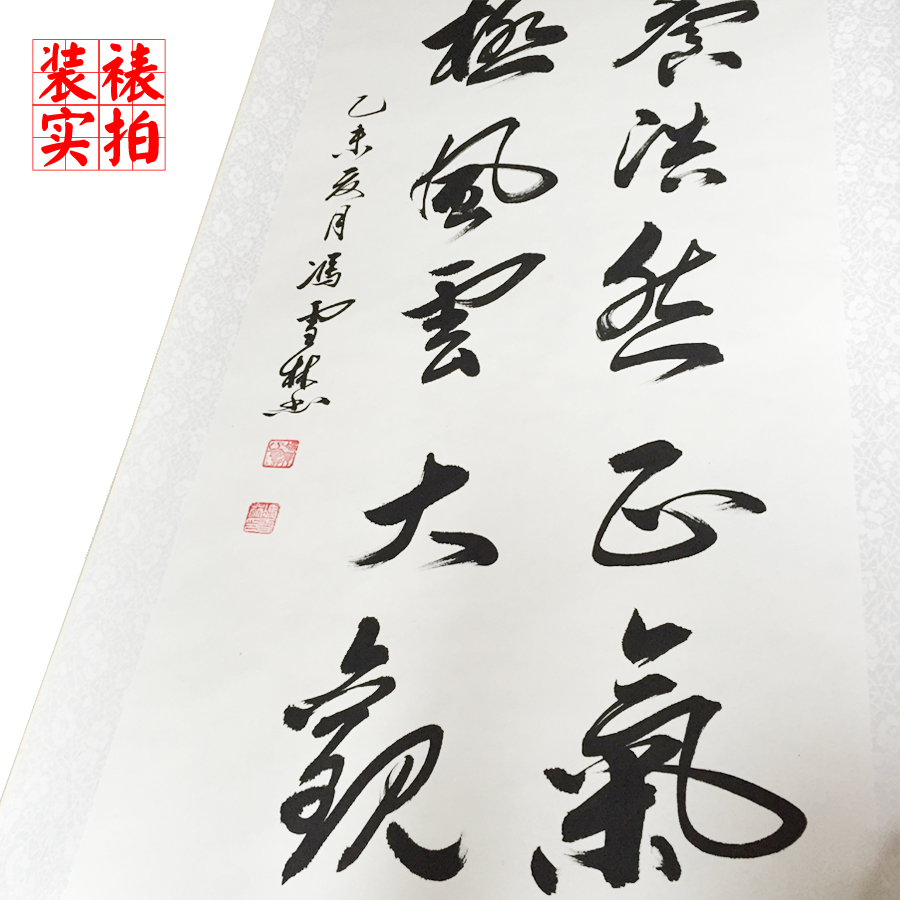 装裱
实拍
養浩然正氣
極風雲大觀
乙未夏月馮雪林书